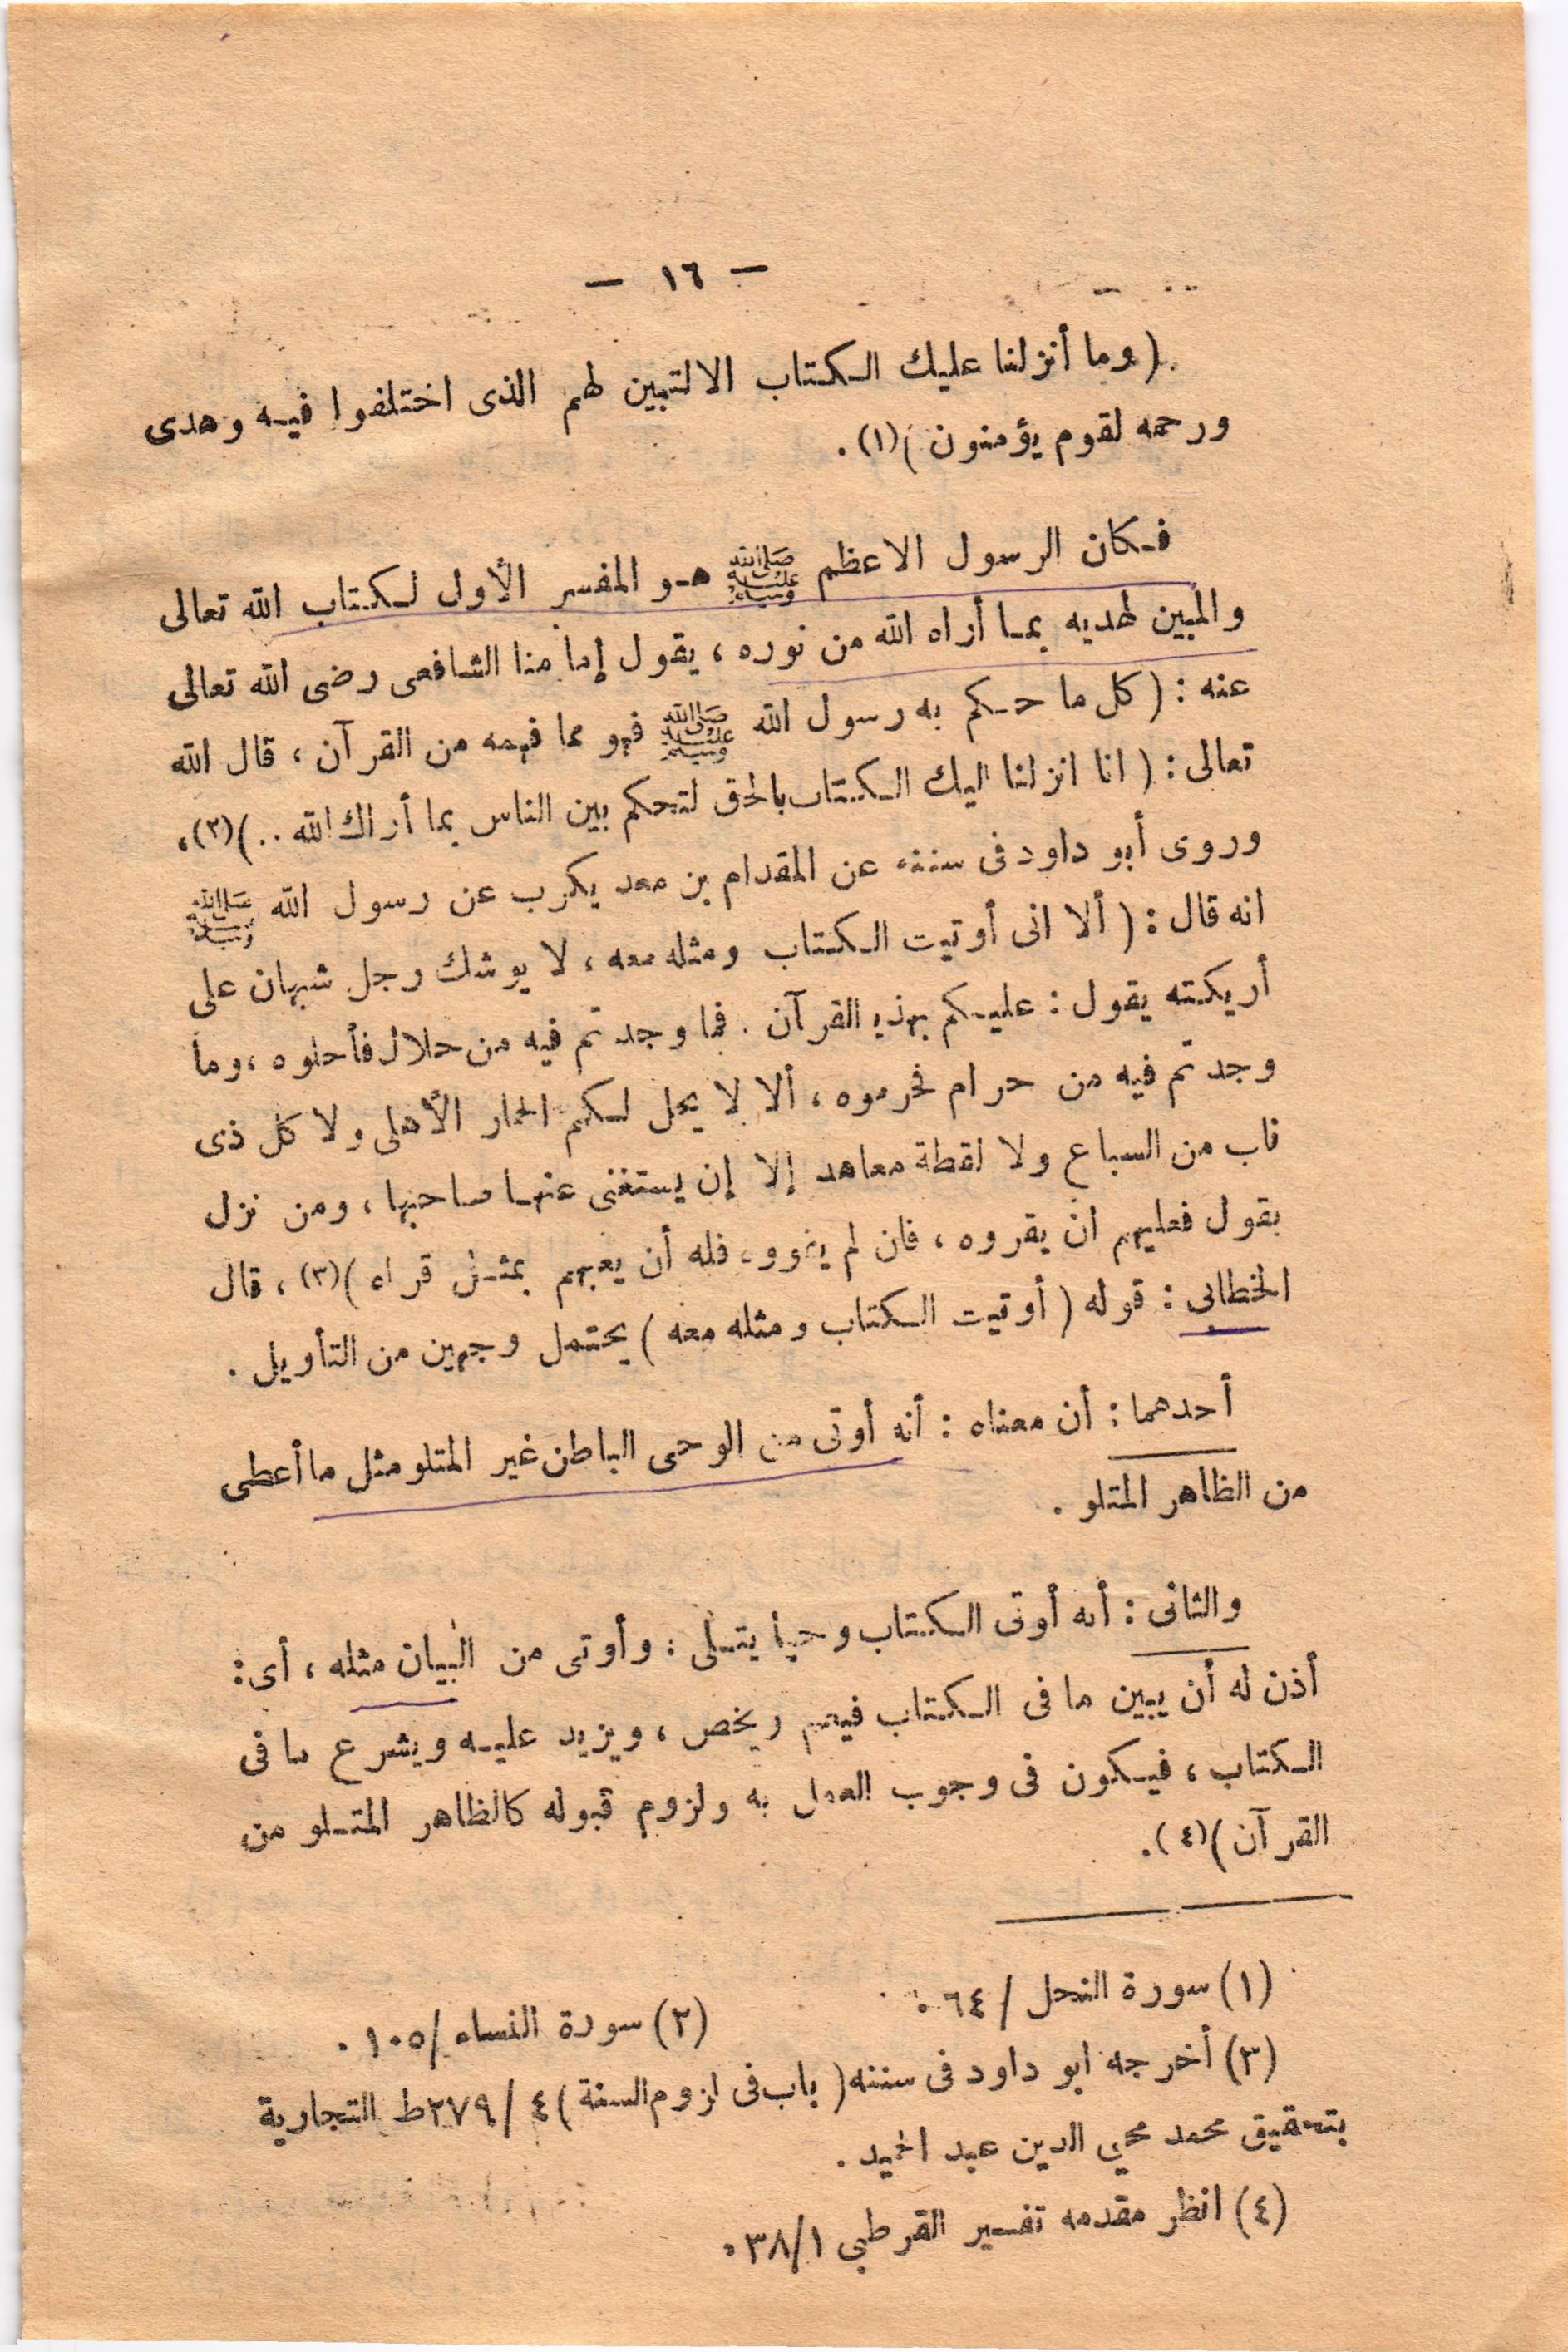 — ١٦ —
( وما أنزلنا عليك الكتاب الا لتبين لهم الذى اختلفوا فيه وهدى
ورحمه لقوم يؤمنون )(١) .
فكان الرسول الاعظم ﷺ هو المفسر الأول لكتاب الله تعالى
والمبين لهديه بما أراه الله من نوره ، يقول إمامنا الشافعى رضى الله تعالى
عنه : ( كل ما حكم به رسول الله ﷺ فهو مما فهمه من القرآن ، قال الله
تعالى : ( انا انزلنا اليك الكتاب بالحق لتحكم بين الناس بما أراك الله .. )(٢) ،
وروى أبو داود فى سننه عن المقدام بن معد يكرب عن رسول الله ﷺ
انه قال : ( ألا انى أوتيت الكتاب ومثله معه ، لا يوشك رجل شبهان على
أريكته يقول : عليكم بهذا القرآن . فما وجدتم فيه من حلال فأحلوه ، وما
وجدتم فيه من حرام فحرموه ، ألا لا يحل لكم الحمار الأهلى ولا كل ذى
ناب من السباع ولا لقطة معاهد إلا إن يستغنى عنها صاحبها ، ومن نزل
بقول فعليهم ان يقروه ، فان لم فله أن يعقبهم بمثل قراه )(٣) ، قال
الخطابى : قوله ( أوتيت الكتاب ومثله معه ) يحتمل وجهين من التأويل .
أحدهما : أن معناه : أنه أوتى من الوحى الباطن غير المتلو مثل ما أعطى
من الظاهر المتلو .
والثانى : أنه أوتى الكتاب وحيا يتلى : وأوتى من البيان مثله ، أى :
أذن له أن يبين ما فى الكتاب فيعم ويخص ، ويزيد عليه ويشرع ما فى
الكتاب ، فيكون فى وجوب العمل به ولزوم قبوله كالظاهر المتلو من
القرآن )(٤) .
(١) سورة النحل / ٦٤ .
(٢) سورة النساء / ١٠٥ .
(٣) أخرجه ابو داود فى سننه ( باب فى لزوم السنة ) ٤ / ٢٧٩ ط التجارية
بتحقيق محمد محيي الدين عبد الحميد .
(٤) انظر مقدمه تفسير القرطبي ٣٨/١ .